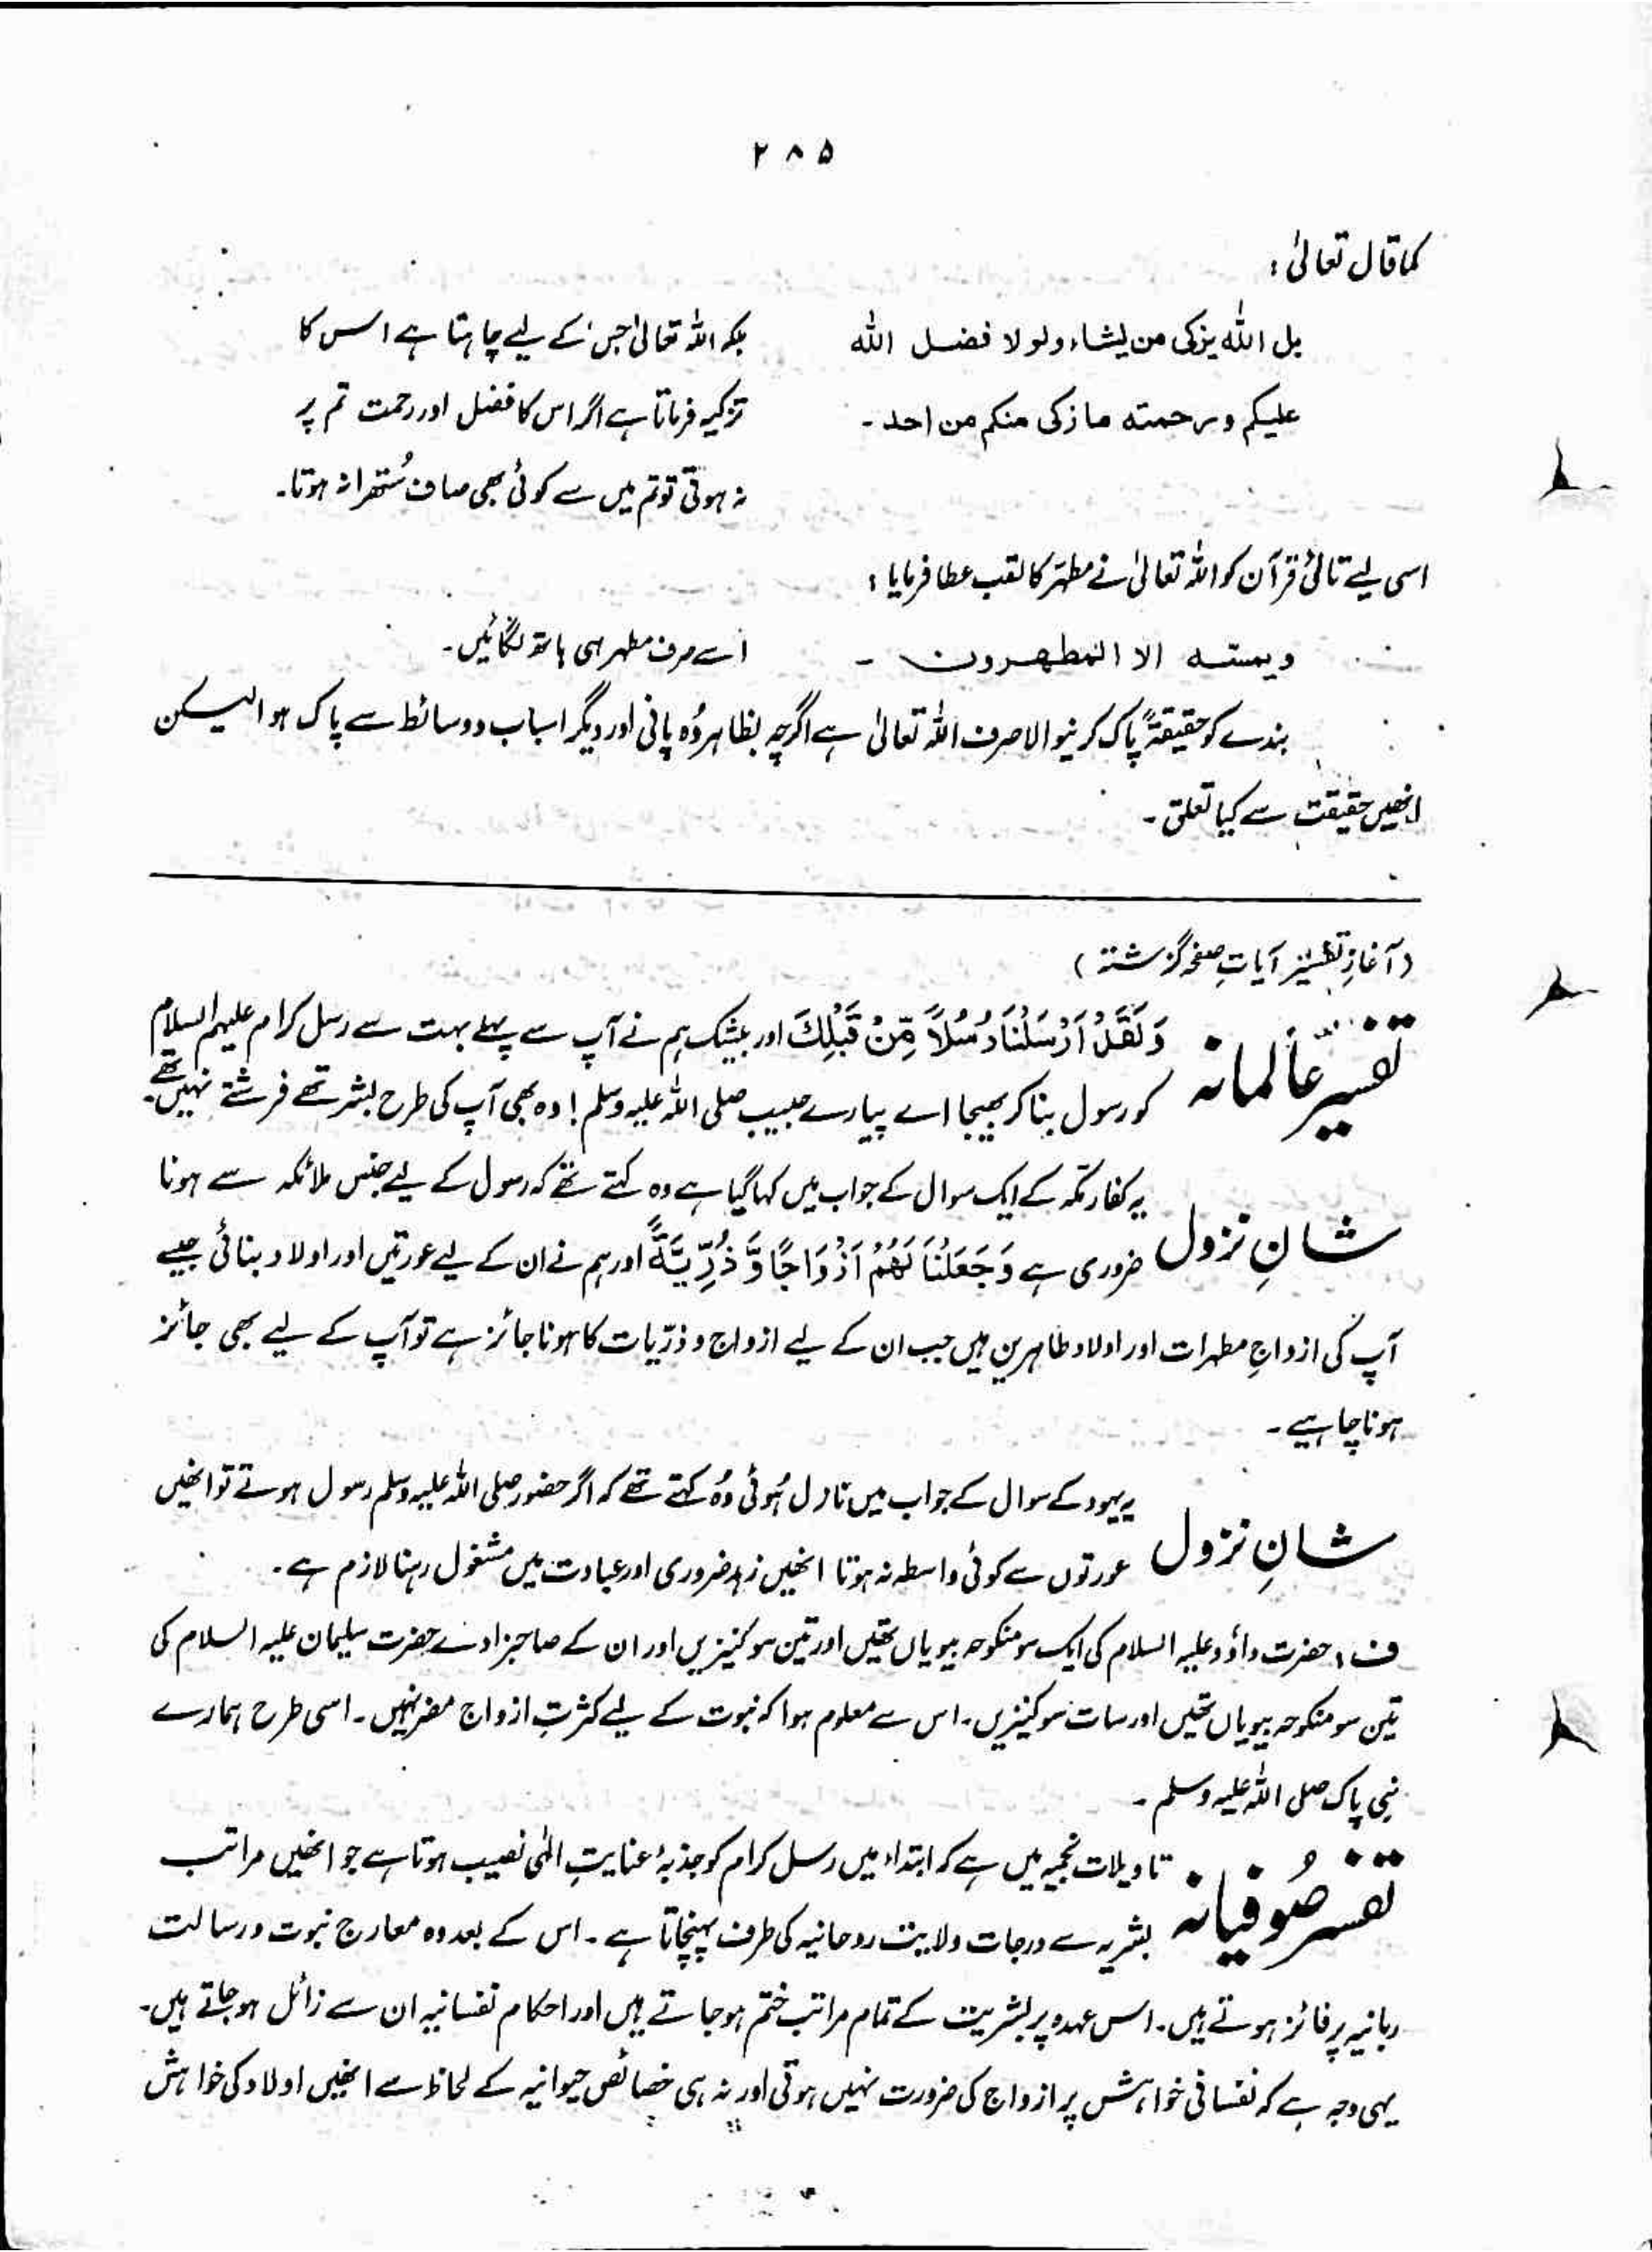 ۲۸۵
کما قال تعالیٰ :
بل اللہ یزکی من یشاء ولو لا فضل اللہ
علیکم ورحمتہ ما زکی منکم من احد ۔
بلکہ اللہ تعالیٰ جس کے لیے چاہتا ہے اس کا
تزکیہ فرماتا ہے اگر اس کا فضل اور رحمت تم پر
نہ ہوتی تو تم میں سے کوئی بھی صاف سُتھرا نہ ہوتا۔
اسی لیے تالیٔ قرآن کو اللہ تعالیٰ نے مطہر کا لقب عطا فرمایا :
ویمستہ الا المطھرون ۔
اسے صرف مطہر ہی ہاتھ لگائیں۔
بندے کو حقیقۃً پاک کرنیوالا صرف اللہ تعالیٰ ہے اگرچہ بظاہر وُہ پانی اور دیگر اسباب ووسائط سے پاک ہوا لیسکن
انھیں حقیقت سے کیا تعلق ۔
(آغازِ تفسیر آیاتِ صفحہ گزشتہ)
تفسیر عالمانہ وَلَقَدْ اَرْسَلْنَا رُسُلًا مِّنْ قَبْلِكَ اور بیشک ہم نے آپ سے پہلے بہت سے رسل کرام علیہم السلام
کو رسول بنا کر بھیجا اے پیارے حبیب صلی اللہ علیہ وسلم ! وہ بھی آپ کی طرح بشر تھے فرشتے نہیں تھے۔
شانِ نزول یہ کفار مکہ کے ایک سوال کے جواب میں کہا گیا ہے وہ کہتے تھے کہ رسول کے لیے جنس ملائکہ سے ہونا
ضروری ہے وَجَعَلْنَا لَهُمْ اَزْوَاجًا وَّ ذُرِّيَّةً اور ہم نے ان کے لیے عورتیں اور اولاد بنائی جیسے
آپ کی ازواجِ مطہرات اور اولاد طاہرین ہیں جب ان کے لیے ازواج و ذرّیات کا ہونا جائز ہے تو آپ کے لیے بھی جائز
ہونا چاہیے ۔
شانِ نزول یہ یہود کے سوال کے جواب میں نازل ہُوئی وُہ کہتے تھے کہ اگر حضور صلی اللہ علیہ وسلم رسول ہوتے تو انھیں
عورتوں سے کوئی واسطہ نہ ہوتا انھیں زہد ضروری اور عبادت میں مشغول رہنا لازم ہے ۔
ف : حضرت داؤد علیہ السلام کی ایک سو منکوحہ بیویاں تھیں اور تین سو کنیزیں اور ان کے صاحبزادے حضرت سلیمان علیہ السلام کی
تین سو منکوحہ بیویاں تھیں اور سات سو کنیزیں۔ اس سے معلوم ہوا کہ نبوت کے لیے کثرتِ ازواج مضر نہیں ۔ اسی طرح ہمارے
نبی پاک صلی اللہ علیہ وسلم ۔
تفسیر صُوفیانہ تاویلات نجمیہ میں ہے کہ ابتداء میں رسل کرام کو جذبۂ عنایتِ الٰہی نصیب ہوتا ہے جو انھیں مراتب
بشریہ سے درجات ولایت روحانیہ کی طرف پہنچاتا ہے ۔ اس کے بعد وہ معارج نبوت ورسالت
ربانیہ پر فائز ہوتے ہیں۔ اس عہدہ پر بشریت کے تمام مراتب ختم ہو جاتے ہیں اور احکام نفسانیہ ان سے زائل ہو جاتے ہیں۔
یہی وجہ ہے کہ نفسانی خواہش پر ازواج کی ضرورت نہیں ہوتی اور نہ ہی خصائص حیوانیہ کے لحاظ سے انھیں اولاد کی خواہش